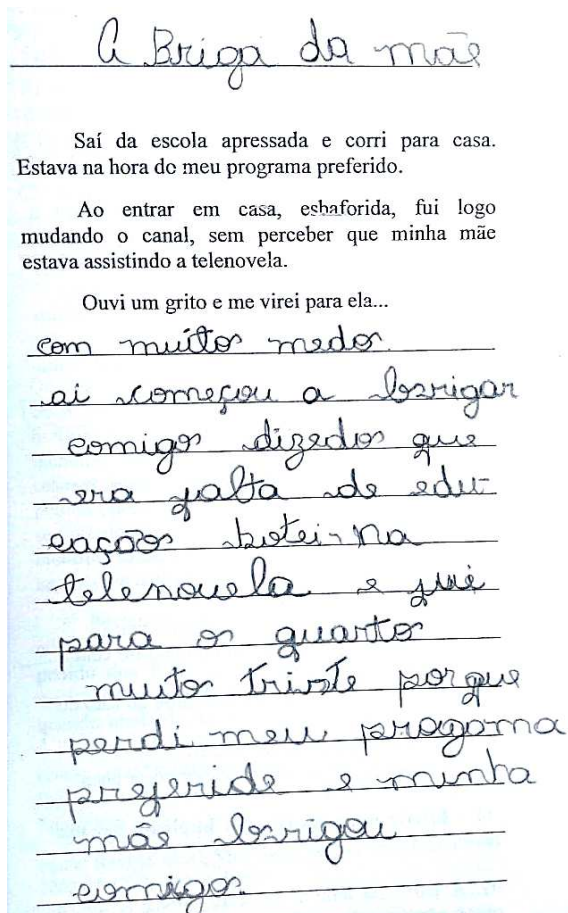 A Briga da mãe
Saí da escola apressada e corri para casa.
Estava na hora do meu programa preferido.
Ao entrar em casa, esbaforida, fui logo
mudando o canal, sem perceber que minha mãe
estava assistindo a telenovela.
Ouvi um grito e me virei para ela...
com muito medo
ai começou a brigar
comigo dizedo que
era falta de edu-
cação botei na
telenovela e fui
para o quarto
muito triste porque
perdi meu progorma
preferide e minha
mãe brigou
comigo.